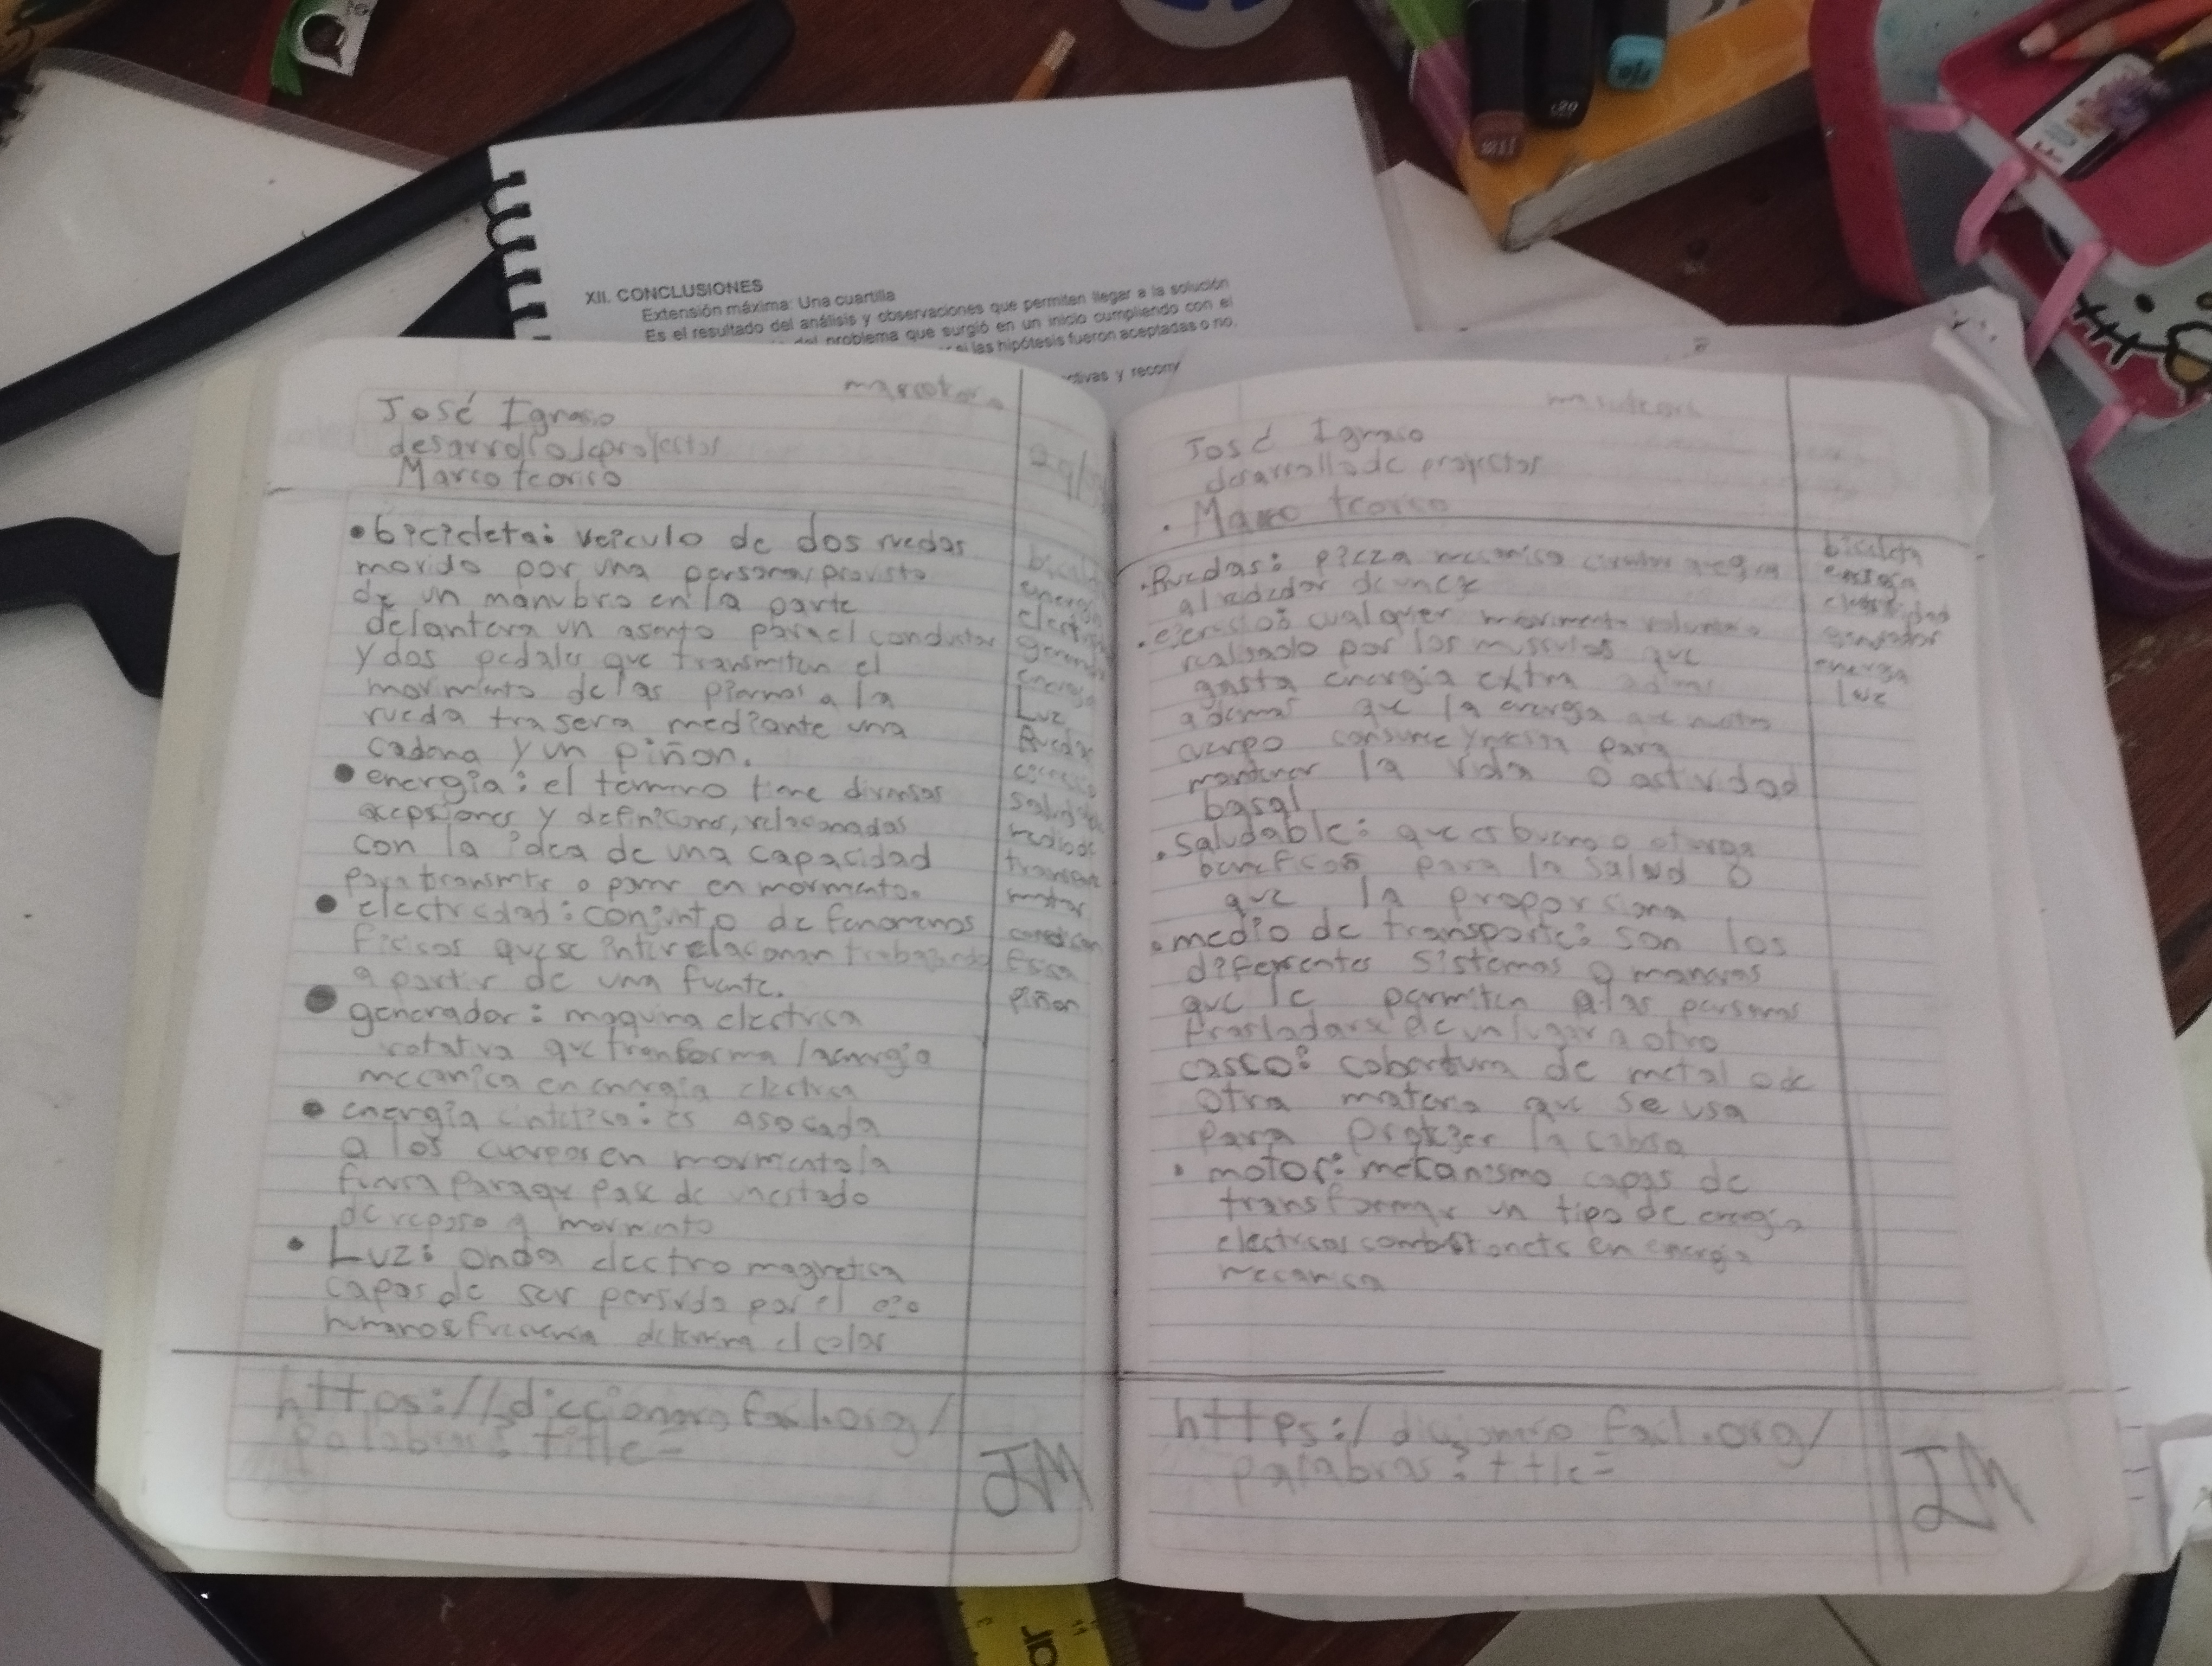 XII. CONCLUSIONES
Extensión máxima: Una cuartilla
Es el resultado del análisis y observaciones que permiten llegar a la solución
del problema que surgió en un inicio cumpliendo con el
si las hipótesis fueron aceptadas o no.
y recony
José Ignaso
desarrollo de projectos
Marco teorico
• bicicleta: veiculo de dos ruedas
movido por una persona, provisto
de un manubrio en la parte
delantera un asento para el conductor
y dos pedales que transmiten el
movimento de las piernas a la
rueda trasera mediante una
cadena y un piñon.
• energia: el termino tiene diversas
acepsiones y definiciones, relasonadas
con la idea de una capacidad
para transmitir o poner en movimento.
• electrisidad: conjunto de fenomenos
fisicos que se interrelasonan trabajando
a partir de una fuente.
• generador: maquina electrica
rotativa que tranforma la energia
mecanica en energia electrica
• energia sinetica: es asosada
a los cuerpos en movimento la
fuersa para que pase de un estado
de reposo a movimento
• Luz: onda electro magnetica
capas de ser persivida por el ojo
humano frecuencia determina el color
https://diccionario facil.org/
palabras? title=
JM
bicicl
energia
electri
generad
energia
Luz
Ruedas
saludab
medio de
transpor
motor
fisica
piñon
José Ignaso
desarrollo de projectos
• Marco teorico
• Ruedas: pieza mecanica circular que gira
alrededor de un eje
• ejersisio: cualquier movimento voluntario
realisado por los musculos que
gasta energia extra
ademas que la energia que nuestro
cuerpo consume y nesesita para
mantener la vida o actividad
basal
• saludable: que es bueno o otorga
beneficos para la salud o
que la proporsiona
• medio de transporte: son los
diferentes sistemas o maneras
que le permiten a las personas
trasladarse de un lugar a otro
casco: cobertura de metal o de
otra materia que se usa
para proteger la cabesa
• motor: mecanismo capas de
transformar un tipo de energia
electrica combustion etc en energia
mecanica
bicicleta
energia
electrisidad
generador
energia
luz
https:/ diccionario facil.org/
palabras? title=
JM